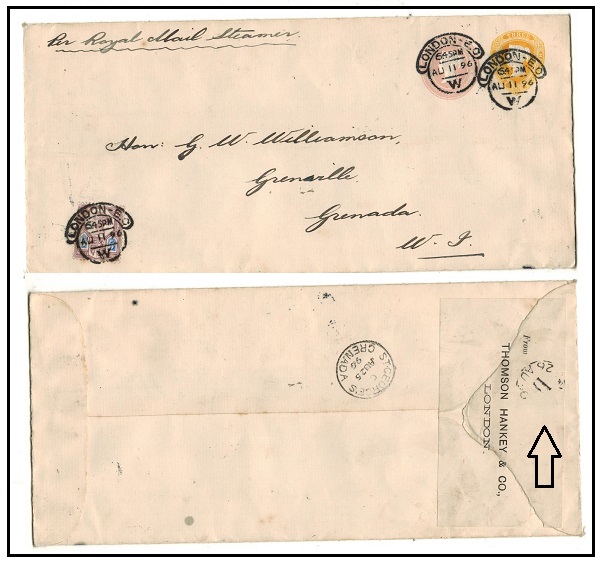 Per Royal Mail Steamer.
LONDON-E.C
645PM
AU 11 96
W
THREE
LONDON-E.C
645PM
AU 11 96
W
Hon: G. W. Williamson,
Grenville.
Grenada.
W. I.
LONDON-E.C
645PM
AU 11 96
W
ST. GEORGE'S
AU 25
96
GRENADA
From
THOMSON HANKEY & CO.,
LONDON.